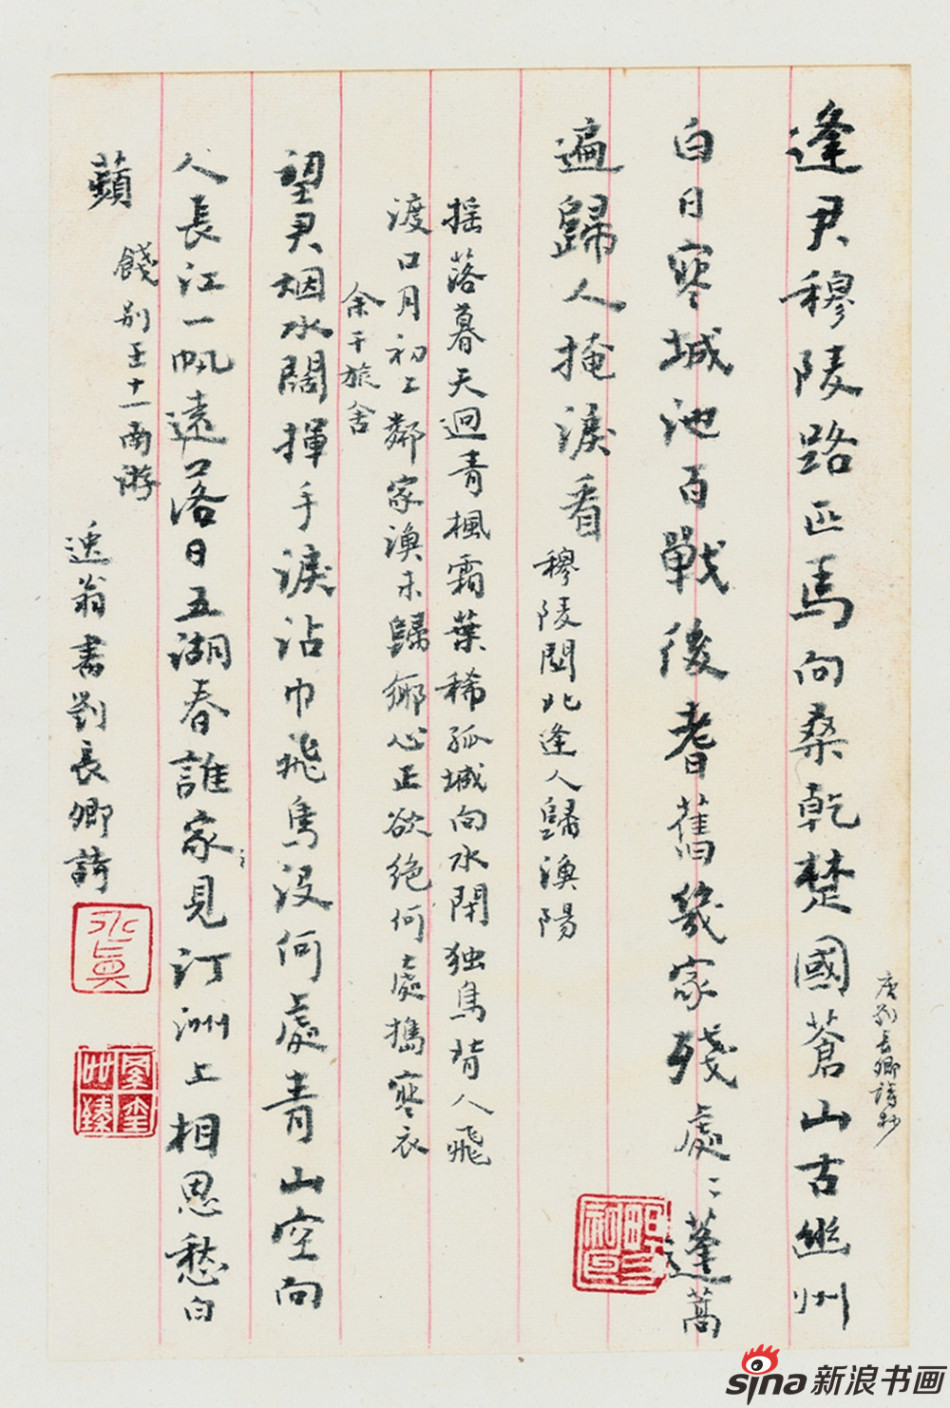 唐劉長卿詩抄
逢君穆陵路匹馬向桑乾楚國蒼山古幽州
白日寒城池百戰後耆舊幾家殘處〻蓬蒿
遍歸人掩淚看
穆陵關北逢人歸漁陽
搖落暮天迥青楓霜葉稀孤城向水閉独鳥背人飛
渡口月初上鄰家漁未歸鄉心正欲絕何處搗寒衣
余干旅舍
望君烟水闊揮手淚沾巾飛鳥沒何處青山空向
人長江一帆遠落日五湖春誰家見汀洲上相思愁白
蘋
餞別王十一南游
逸翁書劉長卿詩
sina新浪书画